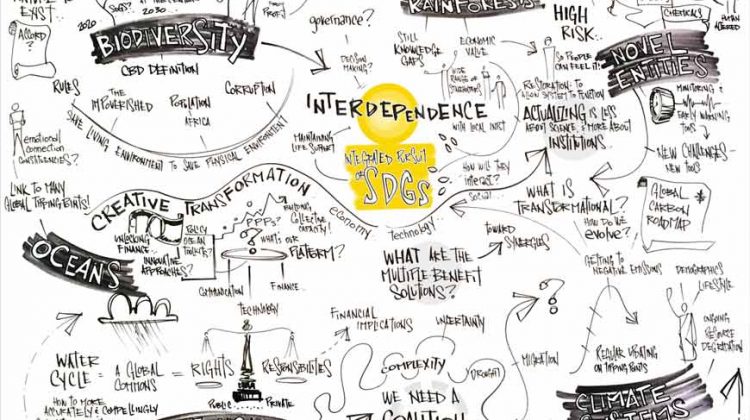 EXIST
ACCORD?
2020
2030
BIODIVERSITY
CBD DEFINITION
RULES
THE
IMPOVERISHED
POPULATION
AFRICA
CORRUPTION
SAFE LIVING ENVIRONMENT TO SAVE PHYSICAL ENVIRONMENT
emotional
connection
LINK TO MANY
GLOBAL TIPPING POINTS!
governance?
DECISION
MAKING?
RAINFORESTS
STILL
KNOWLEDGE
GAPS
ECONOMIC
VALUE
WIDE
RANGE OF
INTERDEPENDENCE
WITH LOCAL INST
MAINTAINING
LIFE SUPPORT
INTEGRATED RESULT
OF
SDGs
HOW WILL THEY
interact?
social
HIGH
RISK..
SO PEOPLE
CAN FEEL IT!
CHEMICALS
HUMAN
NOVEL
ENTITIES
RESTORATION: TO
ALIGN SYSTEM TO FUNCTION
ACTUALIZING IS LESS
ABOUT SCIENCE, & MORE ABOUT
INSTITUTIONS.
MONITORING &
EARLY WARNING
TOOLS
NEW CHALLENGES -
NEW TOOLS
GLOBAL
CARBON
ROADMAP
WHAT IS
TRANSFORMATIONAL?
HOW DO WE
evolve?
CREATIVE TRANSFORMATION
economy
technology
OCEANS
UNLOCKING
FINANCE..
INNOVATIVE
APPROACHES?
POLICY
OCEAN
PPPs?
BUILDING
COLLECTIVE
CAPACITY!
WHAT'S
OUR
PLATFORM?
COMMUNICATION
FINANCE...
TECHNOLOGY
TOWARD
SYNERGIES
WHAT ARE THE
MULTIPLE BENEFIT
SOLUTIONS?
GETTING TO
NEGATIVE EMISSIONS
DEMOGRAPHICS
LIFESTYLE
ONGOING
RESOURCE
DEGRADATION
REGULAR UPDATING
ON TIPPING POINTS
FINANCIAL
IMPLICATIONS
UNCERTAINTY
WATER
CYCLE
= A GLOBAL
COMMONS
= RIGHTS
RESPONSIBILITIES
PUBLIC
PRIVATE
HOW TO MORE
ACCURATELY & COMPELLINGLY
COMPLEXITY
DROUGHT
MIGRATION
WE NEED A
COALITION
CLIMATE